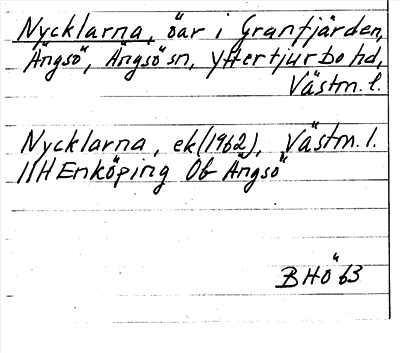 Nycklarna, öar i Granfjärden,
Ängsö, Ängsö sn, Yttertjurbo hd,
Västm. l.
Nycklarna, ek (1962), Västm. l.
11H Enköping Ob Ängsö
BHÖ 63